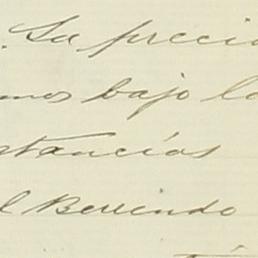 . Su precio
mos bajo lo
stancias
el Berriendo